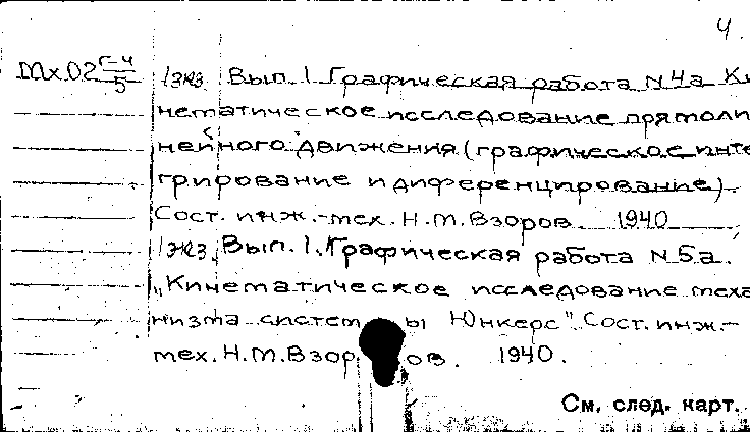 4.
Мх.02 Г-4/5 1 экз. Вып. 1 Графическая работа N 4а Ки
нематическое исследование прямоли
нейного движения (графическое инте
грирование и диференцирование).
Сост. инж.-мех. Н.М. Взоров 1940
1 экз. Вып. 1. Графическая работа N 5а.
„Кинематическое исследование меха
низма системы Юнкерс". Сост. инж.-
мех. Н.М. Взоров. 1940.
См. след. карт.